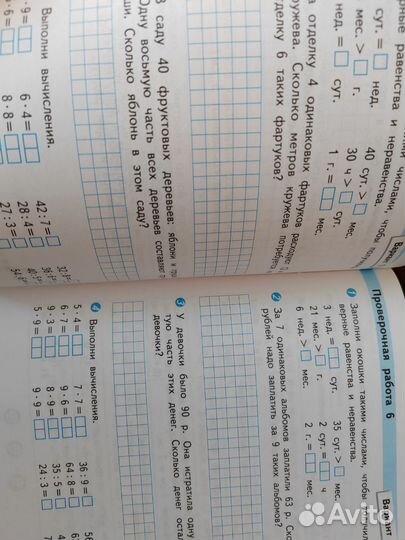 рные равенства и неравенства.
сут. = нед.
мес. > г.
нед. = сут.
40 сут. > мес.
30 ч > сут.
1 г. = мес.
а отделку 4 одинаковых фартуков
кружева. Сколько метров кружева
тделку 6 таких фартуков?
В саду 40 фруктовых деревьев: яблони и
Одну восьмую часть всех деревьев составляют
ши. Сколько яблонь в этом саду?
Выполни вычисления.
· 9 =
· 6 =
6 · 4 =
8 · 8 =
42 : 7 =
28 : 4 =
27 : 3 =
Проверочная работа 6
Вариант
1 Заполни окошки такими числами, чтобы
верные равенства и неравенства.
3 нед. = сут.
21 мес. > г.
6 нед. > мес.
35 сут. > мес.
2 сут. = ч
2 г. = мес.
2 За 7 одинаковых альбомов заплатили 63 р.
рублей надо заплатить за 9 таких альбомов?
3 У девочки было 90 р. Она истратила одну
тую часть этих денег. Сколько денег
девочки?
4 Выполни вычисления.
5 · 4 =
6 · 7 =
9 · 3 =
5 · 9 =
7 · 7 =
9 · 6 =
8 · 9 =
9 · 9 =
36 : 9 =
64 : 8 =
35 : 5 =
24 : 3 =
Avito